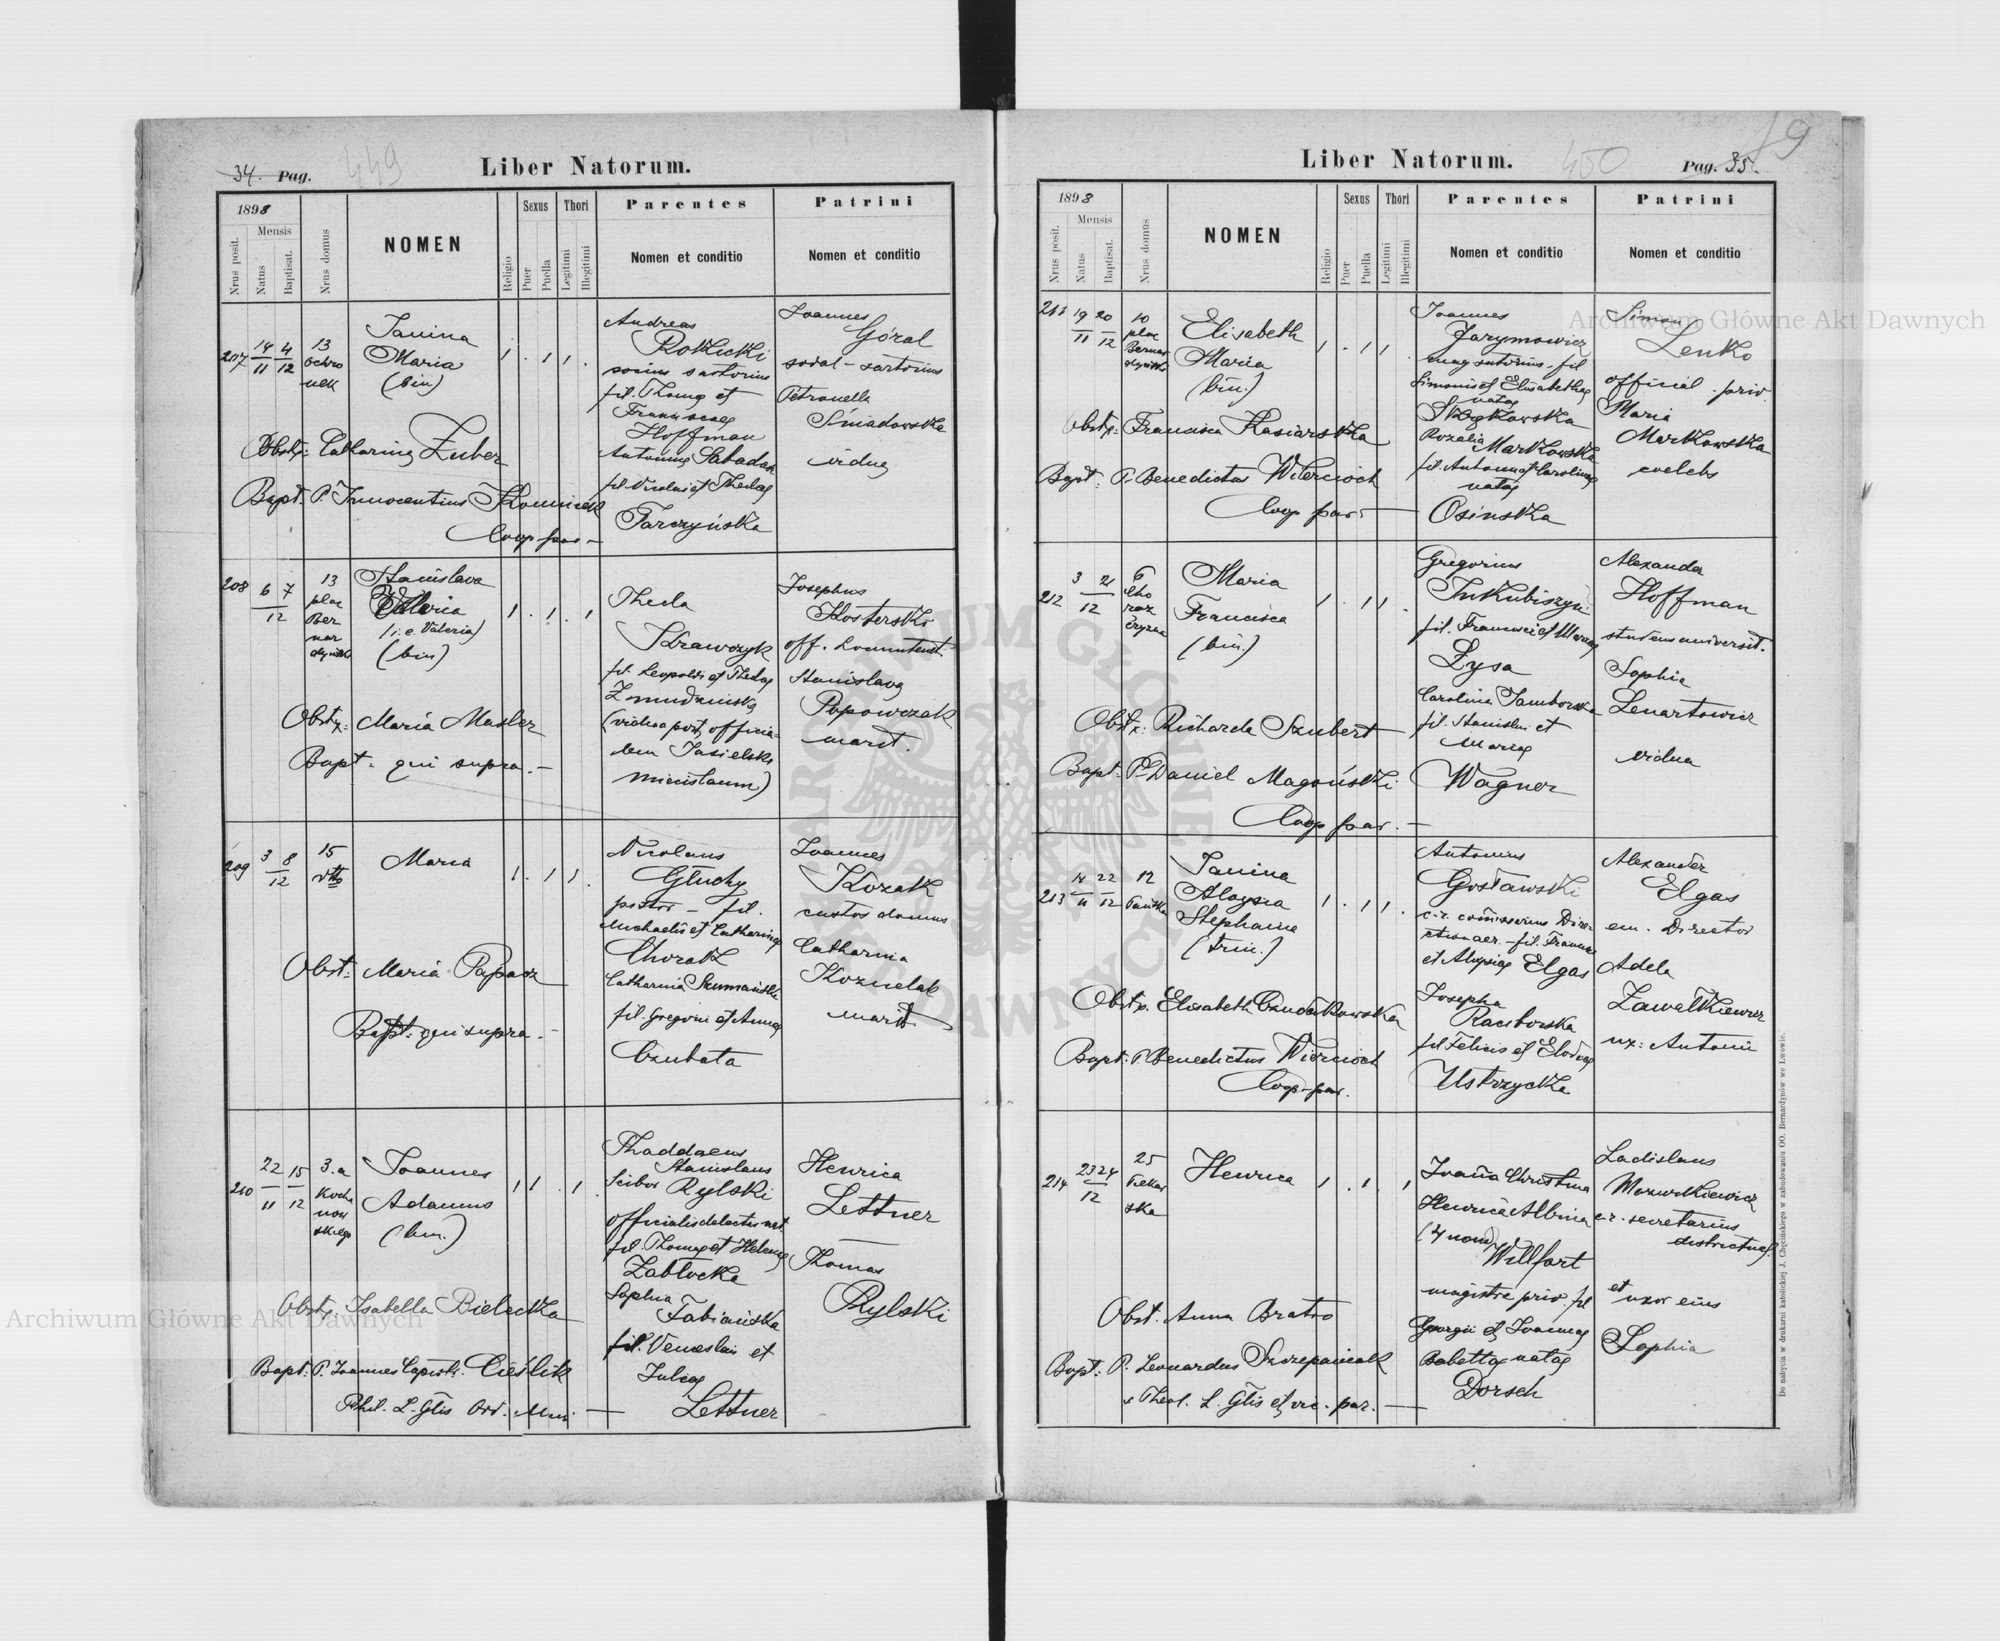 34. Pag.
449
Liber Natorum.
1898
Nrus posit.
Mensis
Natus
Baptisat.
Nrus domus
NOMEN
Religio
Sexus
Puer
Puella
Thori
Legitimi
Illegitimi
Parentes
Nomen et conditio
Patrini
Nomen et conditio
207
14
11
4
12
13
Janina
Maria
(bin)
Obstx: Catharina Zuber
Bapt. P. Innocentius
Coop par –
Andreas
socius sartorius
fil. Thomæ et
Franciscæ
Hoffman
Antonina
fil. Nicolai et Theclæ
Tarczyńska
Joannes
Góral
sodal – sartorius
Petronella
Śniadowska
vidua
208
6 7
12
13
plac
Ber
nar
Stanislava
(i.e. Valeria)
(bin)
Obstx: Maria Masler
Bapt. qui supra. –
Thecla
Krawczyk
fil. Leopoldi et Theclæ
(vidua post officia-
lem
Josephus
Kosterski
off.
Stanislava
Popowczak
marit.
209
3 8
12
15
dtto
Maria
Obst: Maria
Bapt: qui supra. –
Nicolaus
Głuchy
pistor – fil.
Michaelis et Catharinæ
Catharina
fil. Gregorii et Annæ
Czubata
Joannes
Kozak
custos domus
Catharina
marit
210
22
11
15
12
3.a
Kocha
now
skiego
Joannes
Adamus
(bin.)
Obstx. Isabella Bielecka
Bapt: P. Joannes Capistr. Cieślik
Phil. L. Glis Ord. Min –
Thaddaeus
Stanislaus
Scibor Rylski
fil. Thomæ et Helenæ
Zabłocka
Sophia
Fabiańska
fil. Venceslai et
Juliæ
Lettner
Henrica
Lettner
Thomas
Rylski
Liber Natorum.
450
Pag. 35.
19
1898
Nrus posit.
Mensis
Natus
Baptisat.
Nrus domus
NOMEN
Religio
Sexus
Puer
Puella
Thori
Legitimi
Illegitimi
Parentes
Nomen et conditio
Patrini
Nomen et conditio
211
19
11
20
12
10
plac
Elisabeth
Maria
(bin.)
Obstx: Francisca Kasiarska
Bapt: P. Benedictus Wiercioch
Coop par. –
Joannes
Jarymowicz
mag sutorius – fil
Simonis et Elisabethæ
natæ
Rozalia Markowska
fil. Antonii et Carolinæ
natæ
Osinska
Simon
Lenko
official. priv.
Maria
Markowska
coelebs
212
3 21
12
6
Cho
raz
czyzna
Maria
Francisca
(bin.)
Obstx: Richarda Szubert
Bapt. P. Daniel Magoński
Coop par. –
Gregorius
fil. Francisci et Mariæ
Łysa
Carolina
fil. Stanislai et
Mariæ
Wagner
Alexander
Hoffman
studens universit.
Sophia
Lenartowicz
vidua
213
18
11
22
12
12
Janina
Aloysia
Stephania
(trin.)
Obstx. Elisabeth
Bapt: P. Benedictus Wiercioch
Coop – par.
Antonius
Gosławski
fil. Francisci
et Aloysiæ Elgas
Josepha
Raciborska
fil Felicis et
Ustrzycka
Alexander
Elgas
em. Director
Adela
ux: Antonii
214
23 24
12
25
Piekar
ska
Henrica
Obst. Anna Bratro
Bapt: P. Leonardus Szczepaniak
Theol. L. Glis et vic. par. –
Joanna Christina
Henrica Albina
(4 nom) Willfort
magistra priv. fil
Georgii et Joannæ
Babettæ natæ
Dorsch
Ladislaus
c.r. secretarius
et uxor eius
Sophia
Do nabycia w drukarni katolickiej J. Chęcińskiego w zabudowaniu OO. Bernardynów we Lwowie.
Archiwum Główne Akt Dawnych
Archiwum Główne Akt Dawnych
ARCHIWUM GŁÓWNE AKT DAWNYCH